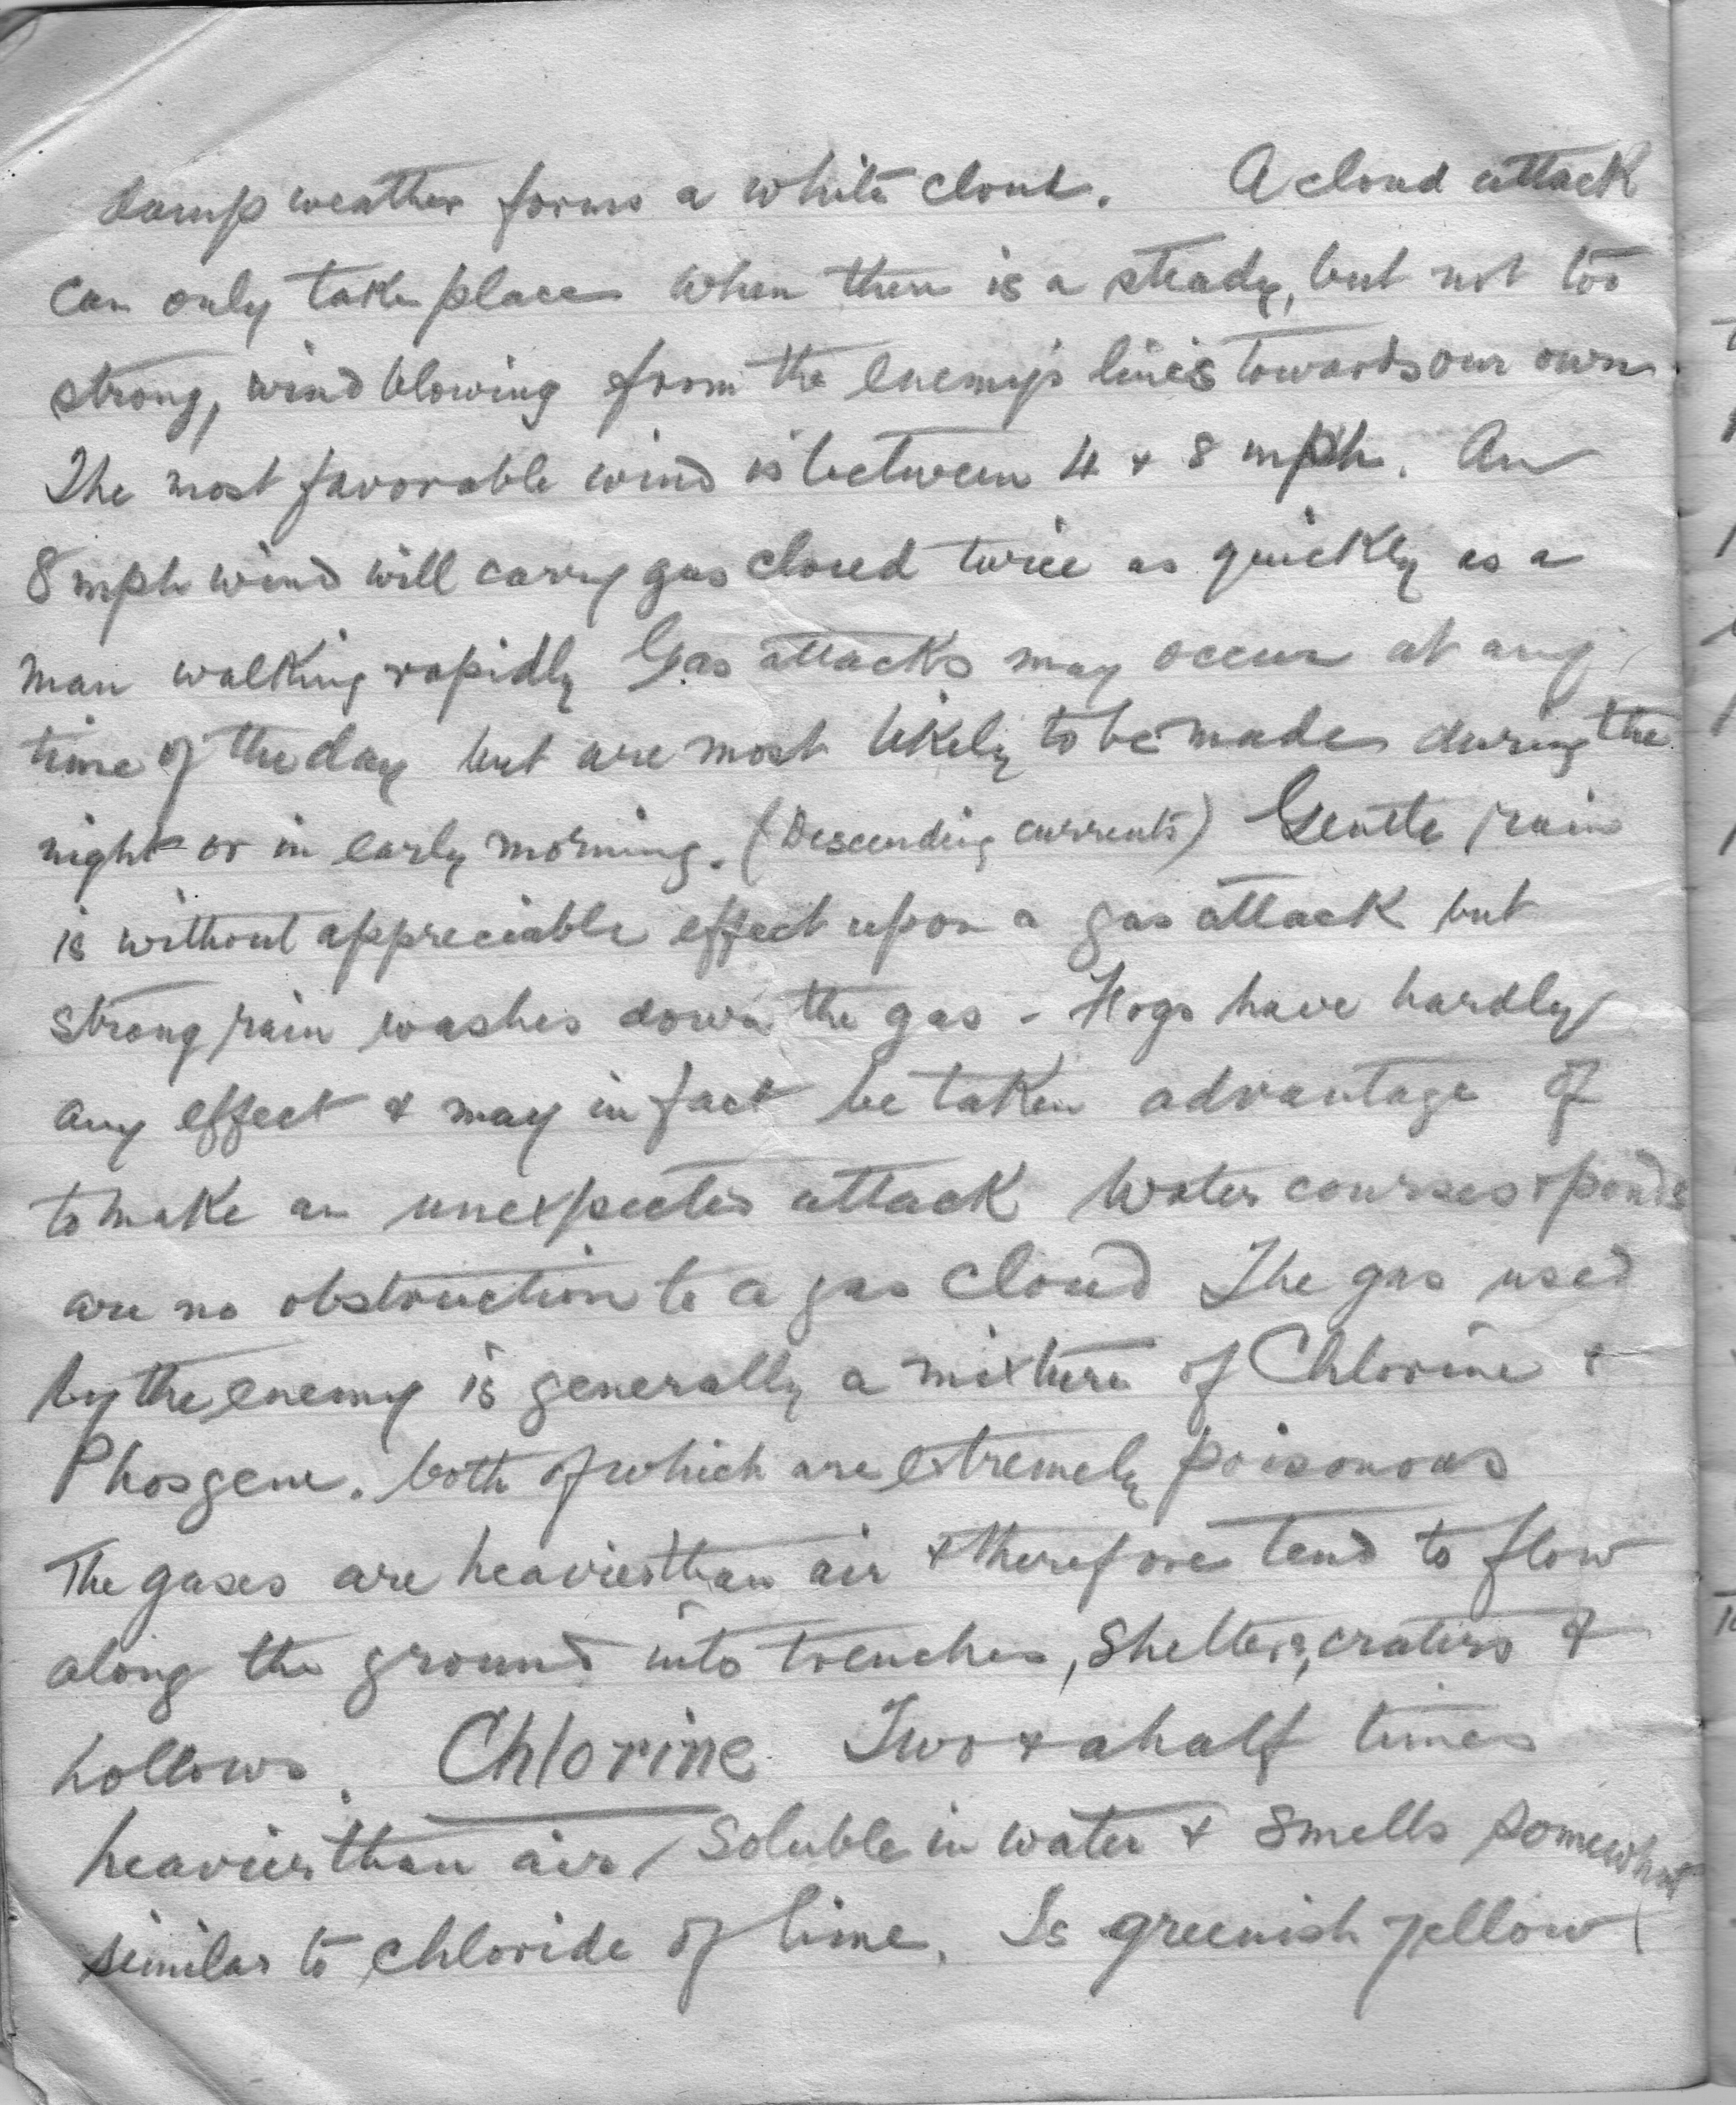 damp weather forms a white cloud. A cloud attack
can only take place when there is a steady, but not too
strong, wind blowing from the enemy's lines towards our own.
The most favorable wind is between 4 & 8 mph. An
8 mph wind will carry gas cloud twice as quickly as a
man walking rapidly Gas attacks may occur at any
time of the day but are most likely to be made during the
night or in early morning. (Descending currents) Gentle rain
is without appreciable effect upon a gas attack but
strong rain washes down the gas - Fogs have hardly
any effect & may in fact be taken advantage of
to make an unexpected attack Water courses & ponds
are no obstruction to a gas cloud The gas used
by the enemy is generally a mixture of Chlorine &
Phosgene. both of which are extremely poisonous
The gases are heavier than air & therefore tend to flow
along the ground into trenches, shelters, craters &
hollows. Chlorine Two & a half times
heavier than air / Soluble in water & smells somewhat
similar to chloride of lime. Is greenish yellow